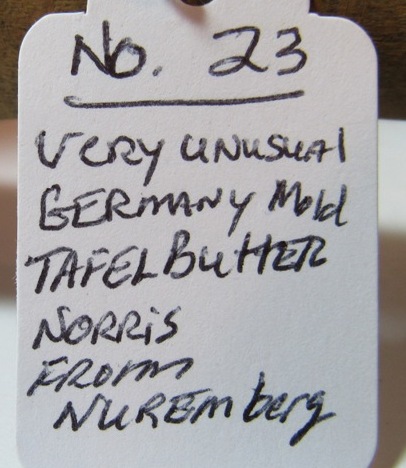 No. 23
VERY UNUSUAl
GERMANY Mold
TAFELBUttER
NORRiS
FROMM
NUREMberg